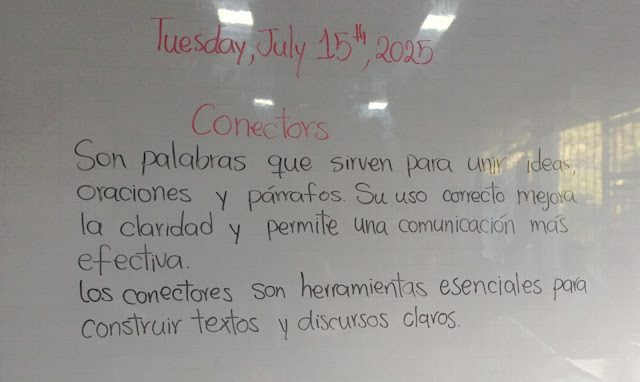 Tuesday, July 15th, 2025
Conectors
Son palabras que sirven para unir ideas,
oraciones y párrafos. Su uso correcto mejora
la claridad y permite una comunicación más
efectiva.
Los conectores son herramientas esenciales para
construir textos y discursos claros.